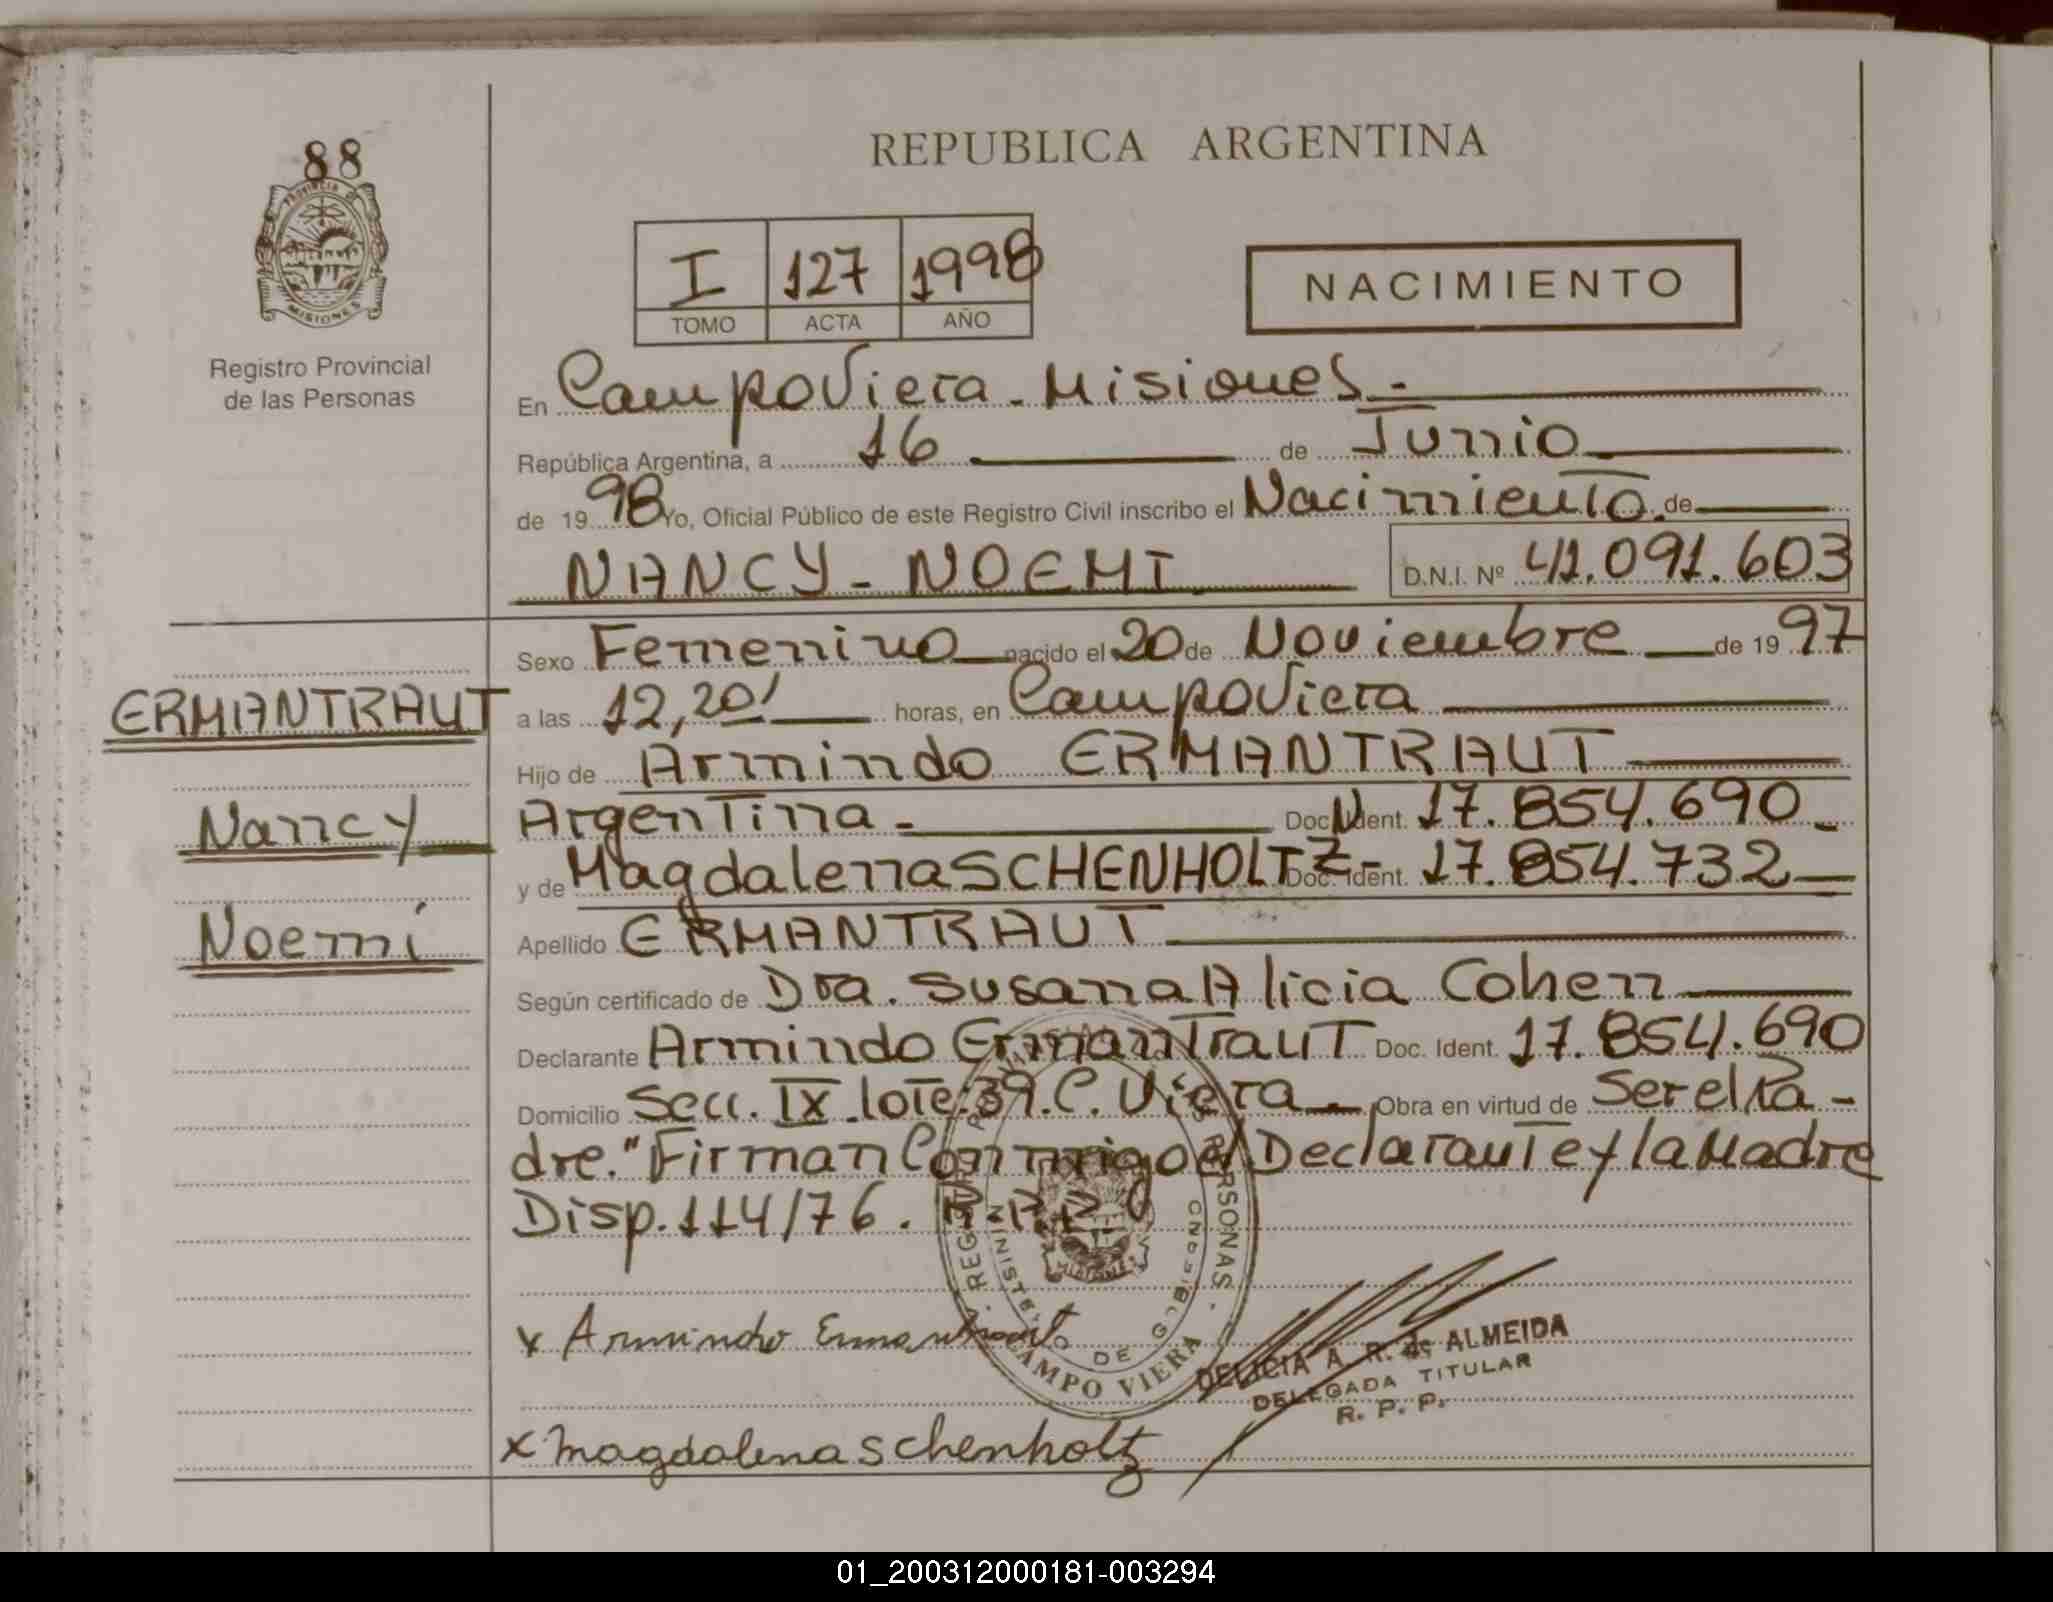 88
PROVINCIA DE
MISIONES
Registro Provincial
de las Personas
REPUBLICA ARGENTINA
I 127 1998
TOMO ACTA AÑO
NACIMIENTO
En Campo Viera - Misiones -
República Argentina, a 16 de Junio
de 1998 Yo, Oficial Público de este Registro Civil inscribo el Nacimiento de
NANCY - NOEMI D.N.I. Nº 41.091.603
Sexo Femenino nacido el 20 de Noviembre de 1997
ERMANTRAUT
a las 12,20' horas, en Campo Viera
Hijo de Armindo ERMANTRAUT
Nancy
Argentina - Doc. Ident. 17.854.690 -
y de Magdalena SCHENHOLTZ - Doc. Ident. 17.854.732
Noemí
Apellido ERMANTRAUT
Según certificado de Dra. Susana Alicia Cohen
Declarante Armindo Ermantraut Doc. Ident. 17.854.690
Domicilio Secc. IX lote: 39. C. Viera - Obra en virtud de Ser el Pa-
dre." Firman Conmigo el Declarante y la Madre
Disp. 114/76.
REGISTRO PERSONAS
MINISTERIO DE GOBIERNO
CAMPO VIERA
x Armindo Ermantraut
DELICIA A. R. de ALMEIDA
DELEGADA TITULAR
R. P. P.
x Magdalena Schenholtz
01_200312000181-003294